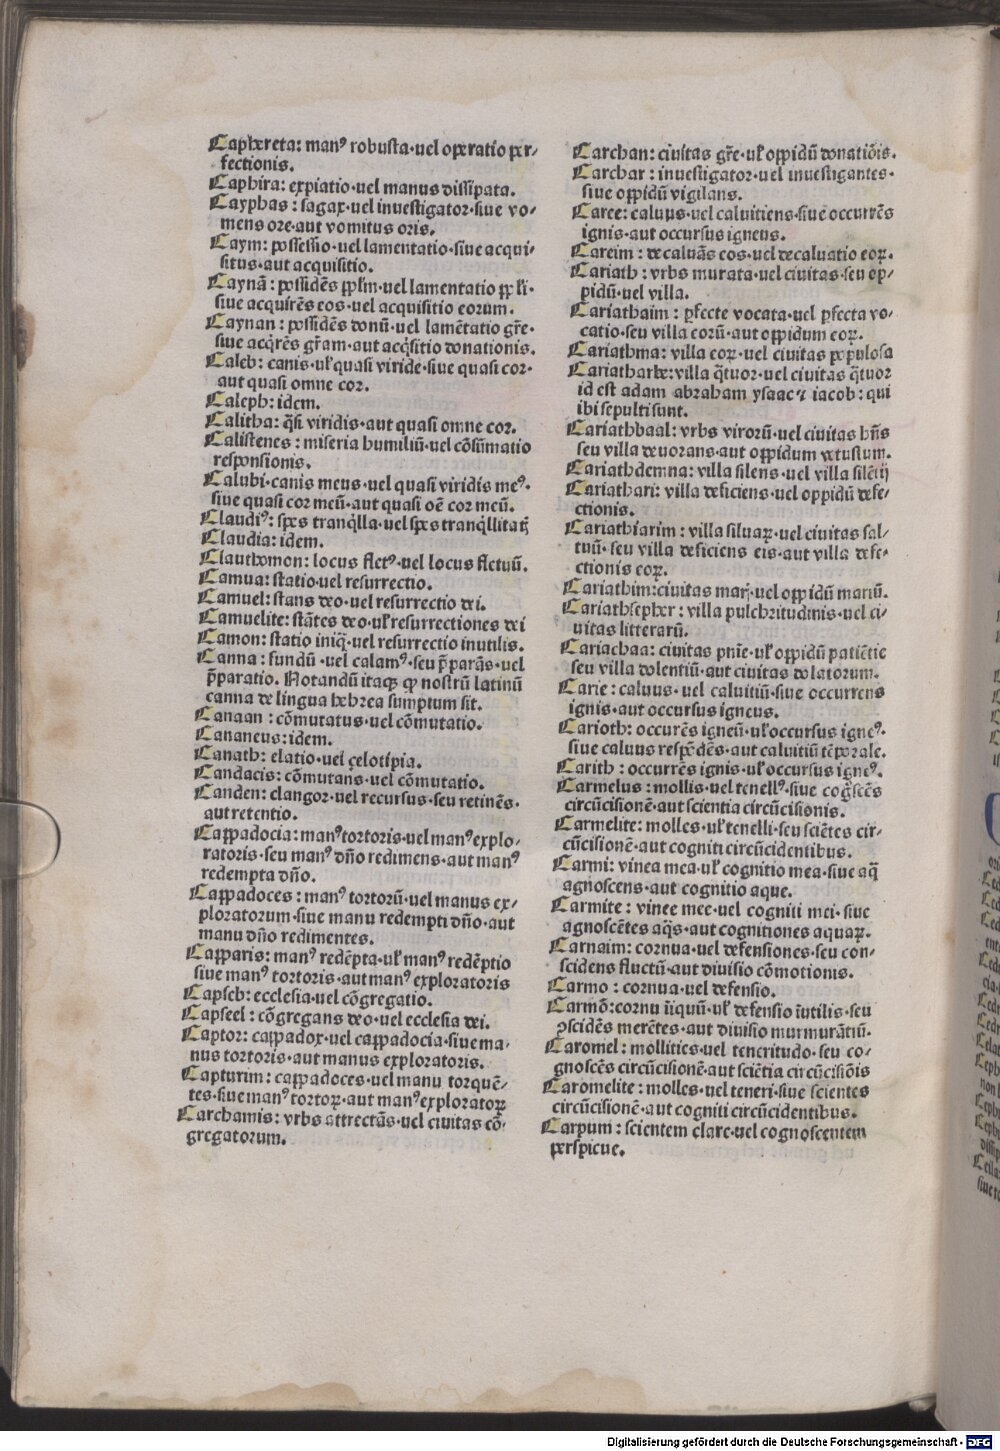 Caphereta: man⁹ robusta·uel operatio per-
fectionis.
Caphira: expiatio·uel manus dissipata.
Cayphas: sagax·uel inuestigator·siue vo-
mens ore·aut vomitus oris.
Caym: possessio·uel lamentatio·siue acqui-
situs·aut acquisitio.
Caynā: possidēs ppl'm·uel lamentatio ppl'i·
siue acquirēs eos·uel acquisitio eorum.
Caynan: possidēs donū·uel lamētatio gr̄e·
siue acq̄rēs gr̄am·aut acq̄sitio donationis.
Caleb: canis·ul' quasi viride·siue quasi cor·
aut quasi omne cor.
Caleph: idem.
Calitha: q̄si viridis·aut quasi omne cor.
Calistenes: miseria humiliū·uel cōsūmatio
responsionis.
Calubi·canis meus·uel quasi viridis me⁹·
siue quasi cor meū·aut quasi oē cor meū.
Claudi⁹: spes tranq̄lla·uel spes tranq̄llitatꝭ
Claudia: idem.
Clauthomon: locus flet⁹·uel locus fletuū.
Camua: statio·uel resurrectio.
Camuel: stans deo·uel resurrectio dei.
Camuelite: stātes deo·ul' resurrectiones dei
Camon: statio iniq̄·uel resurrectio inutilis.
Canna: fundū·uel calam⁹·seu p̄parās·uel
p̄paratio. Notandū itaqꝫ ꝙ nostrū latinū
canna de lingua hebrea sumptum sit.
Canaan: cōmutatus·uel cōmutatio.
Cananeus: idem.
Canath: elatio·uel çelotipia.
Candacis: cōmutans·uel cōmutatio.
Canden: clangor·uel recursus·seu retinēs·
aut retentio.
Cappadocia: man⁹ tortoris·uel man⁹ explo-
ratoris·seu man⁹ dn̄o redimens·aut man⁹
redempta dn̄o.
Cappadoces: man⁹ tortorū·uel manus ex-
ploratorum·siue manu redempti dn̄o·aut
manu dn̄o redimentes.
Capparis: man⁹ redēpta·ul' man⁹ redēptio
siue man⁹ tortoris·aut man⁹ exploratoris
Capseb: ecclesia·uel cōgregatio.
Capseel: cōgregans deo·uel ecclesia dei.
Captor: cappadox·uel cappadocia·siue ma-
nus tortoris·aut manus exploratoris.
Capturim: cappadoces·uel manu torquē-
tes·siue man⁹ tortoꝝ·aut man⁹ exploratoꝝ
Carchamis: vrbs attrectās·uel ciuitas cō-
gregatorum.
Carchan: ciuitas gr̄e·ul' oppidū donatiōis.
Carchar: inuestigator·uel inuestigantes·
siue oppidū vigilans.
Caree: caluus·uel caluitiens·siue occurrēs
ignis·aut occursus igneus.
Careim: decaluās eos·uel decaluatio eoꝝ.
Cariath: vrbs murata·uel ciuitas·seu op-
pidū·uel villa.
Cariathaim: ꝑfecte vocata·uel ꝑfecta vo-
catio·seu villa eorū·aut oppidum eoꝝ.
Cariathma: villa eoꝝ·uel ciuitas populosa
Cariatharbe: villa q̄tuor·uel ciuitas q̄tuor
id est adam abraham ysaac ⁊ iacob: qui
ibi sepulti sunt.
Cariathbaal: vrbs virorū·uel ciuitas hn̄s
seu villa deuorans·aut oppidum vetustum.
Cariathdemna: villa silens·uel villa silētij
Cariathari: villa deficiens·uel oppidū defe-
ctionis.
Cariathiarim: villa siluaꝝ·uel ciuitas sal-
tuū·seu villa deficiens eis·aut villa defe-
ctionis eoꝝ.
Cariathim: ciuitas marꝭ·uel oppidū mariū.
Cariathsepher: villa pulchritudinis·uel ci-
uitas litterarū.
Cariachaa: ciuitas pn̄ie·ul' oppidū patiētie
seu villa dolentiū·aut ciuitas dolatorum.
Carie: caluus·uel caluitiū·siue occurrens
ignis·aut occursus igneus.
Carioth: occurēs igneū·ul' occursus igne⁹·
siue caluus respōdēs·aut caluitiū tēporale.
Carith: occurrēs ignis·ul' occursus igne⁹.
Carmelus: mollis·uel tenell⁹·siue cog̊scēs
circūcisionē·aut scientia circūcisionis.
Carmelite: molles·ul' tenelli·seu sciētes cir-
cūcisionē·aut cogniti circūcidentibus.
Carmi: vinea mea·ul' cognitio mea·siue aq̄
agnoscens·aut cognitio aque.
Carmite: vinee mee·uel cogniti mei·siue
agnoscētes aq̄s·aut cognitiones aquaꝝ.
Carnaim: cornua·uel defensiones·seu con-
scidens fluctū·aut diuisio cōmotionis.
Carmo: cornua·uel defensio.
Carmō: cornu iniquū·ul' defensio iutilis·seu
ꝯscidēs merētes·aut diuisio murmurātiū.
Caromel: mollities·uel teneritudo·seu co-
gnoscēs circūcisionē·aut sciētia circūcisiōis
Caromelite: molles·uel teneri·siue scientes
circūcisionē·aut cogniti circūcidentibus.
Carpum: scientem clare·uel cognoscentem
perspicue.
Digitalisierung gefördert durch die Deutsche Forschungsgemeinschaft - DFG